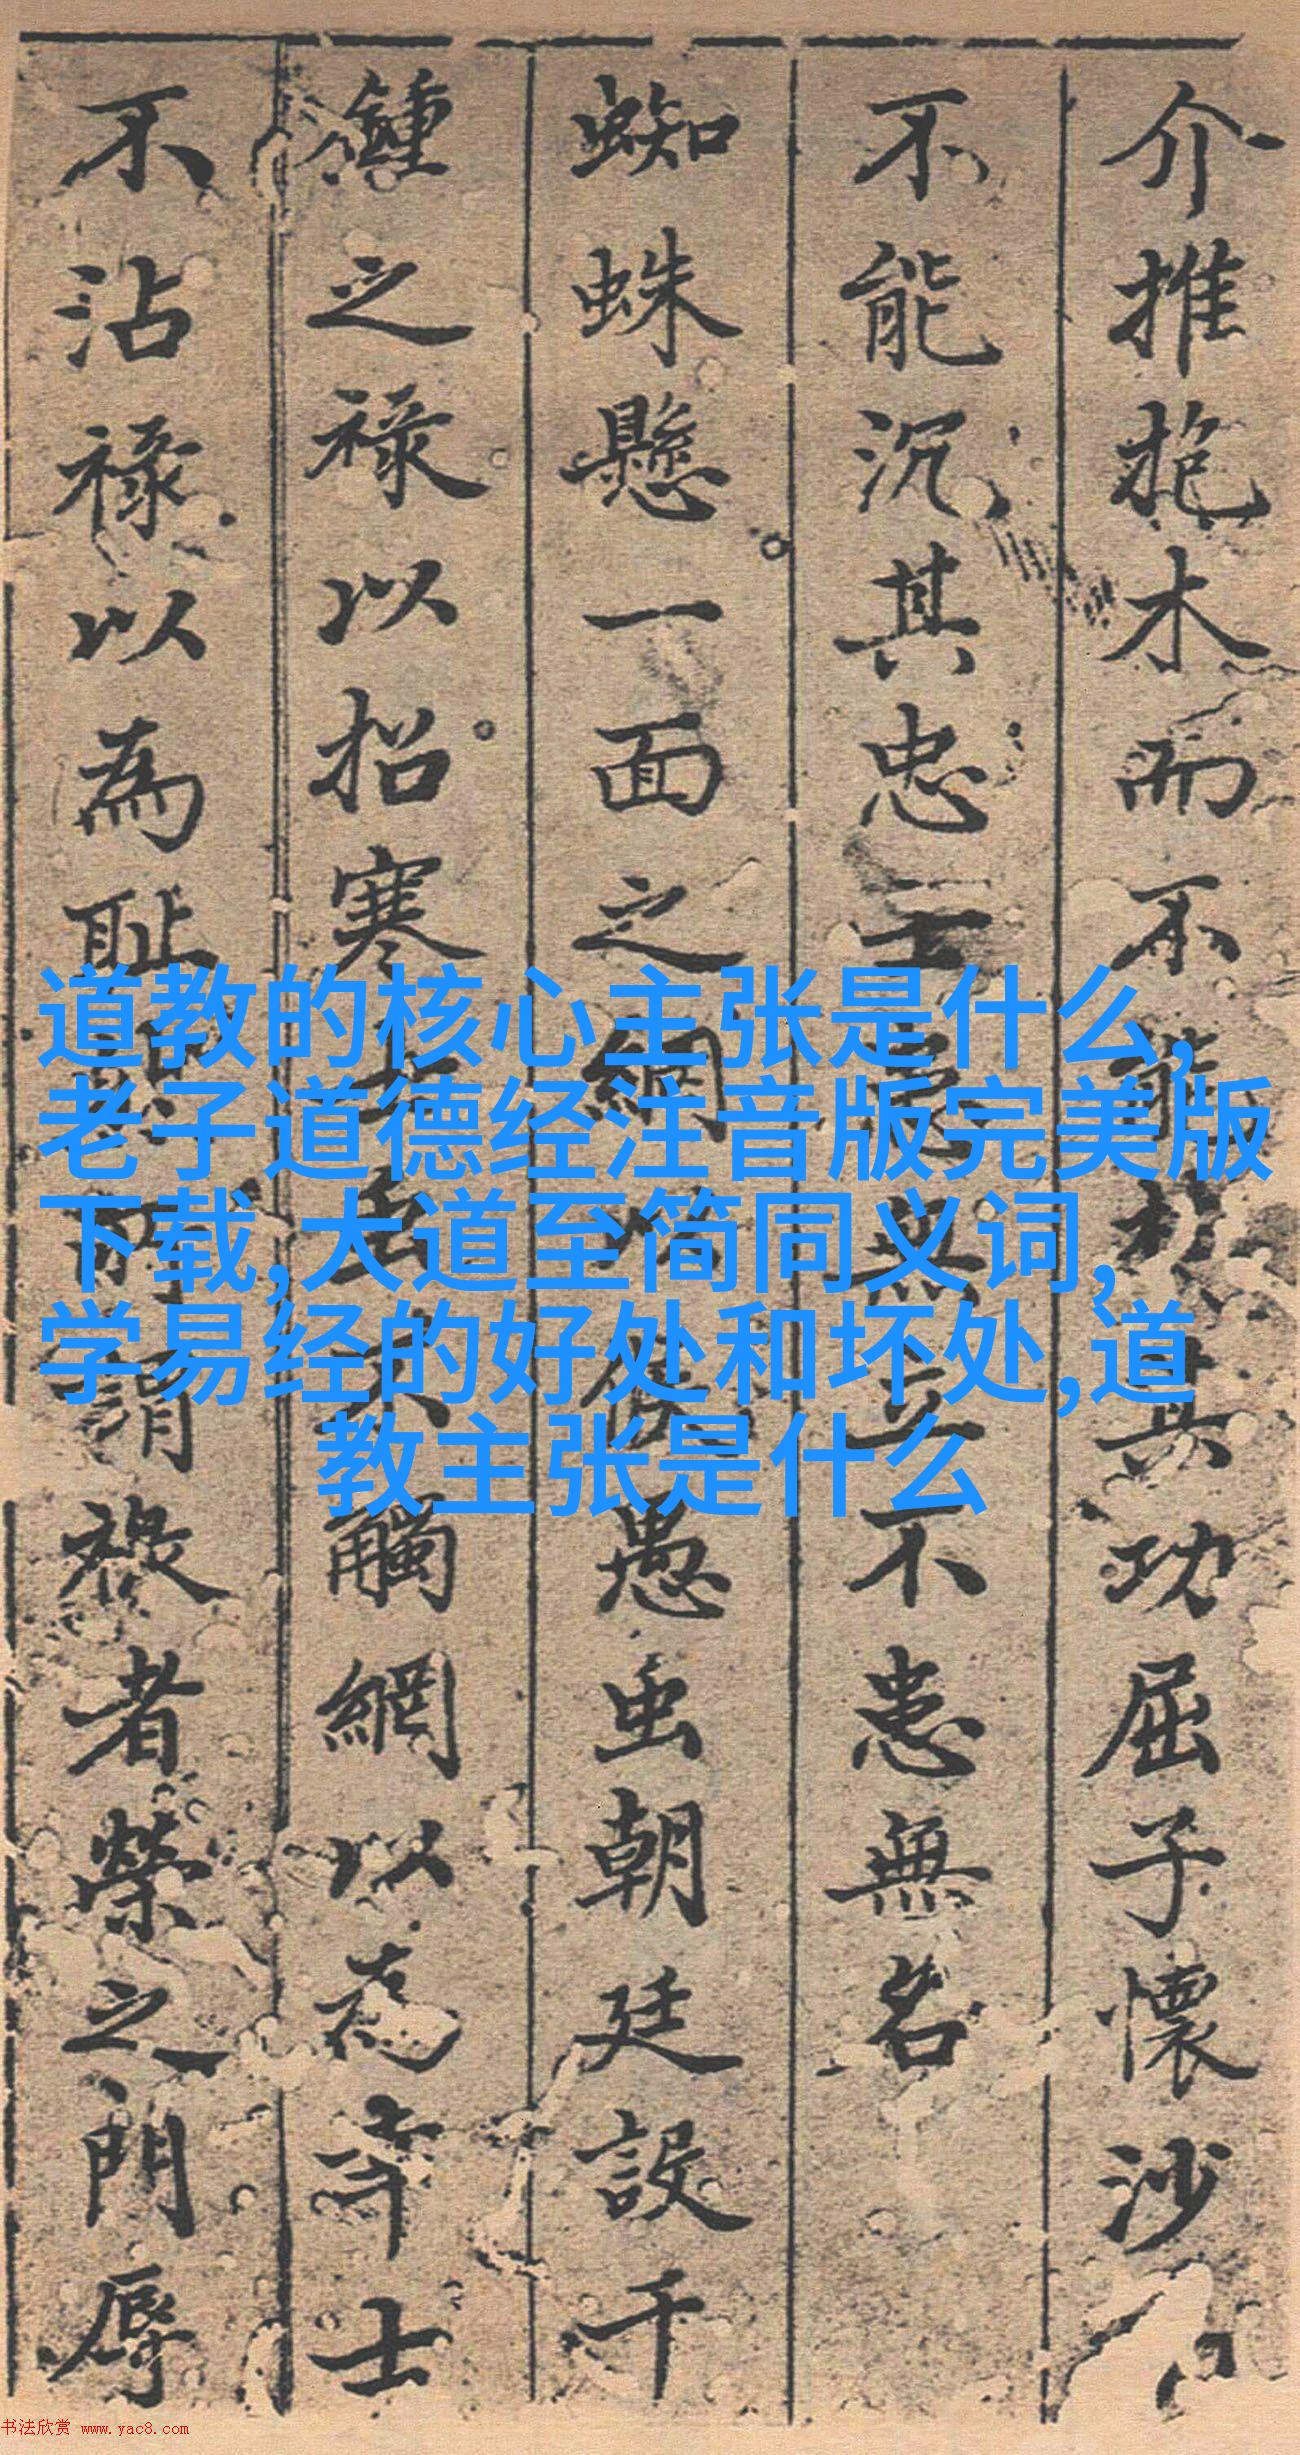 介推抱木而不能於其功屈子懷沙
不能沉其忠士無立不患無名
蜘蛛懸一面之網以愚虫朝廷設千
鍾之祿以招寒士觸網以為士
不沾祿以為耻謂祿者榮之門辱
道教的核心主张是什么,
老子道德经注音版完美版
下载,大道至简同义词,
学易经的好处和坏处,道
教主张是什么
书法欣赏 www.yac8.com